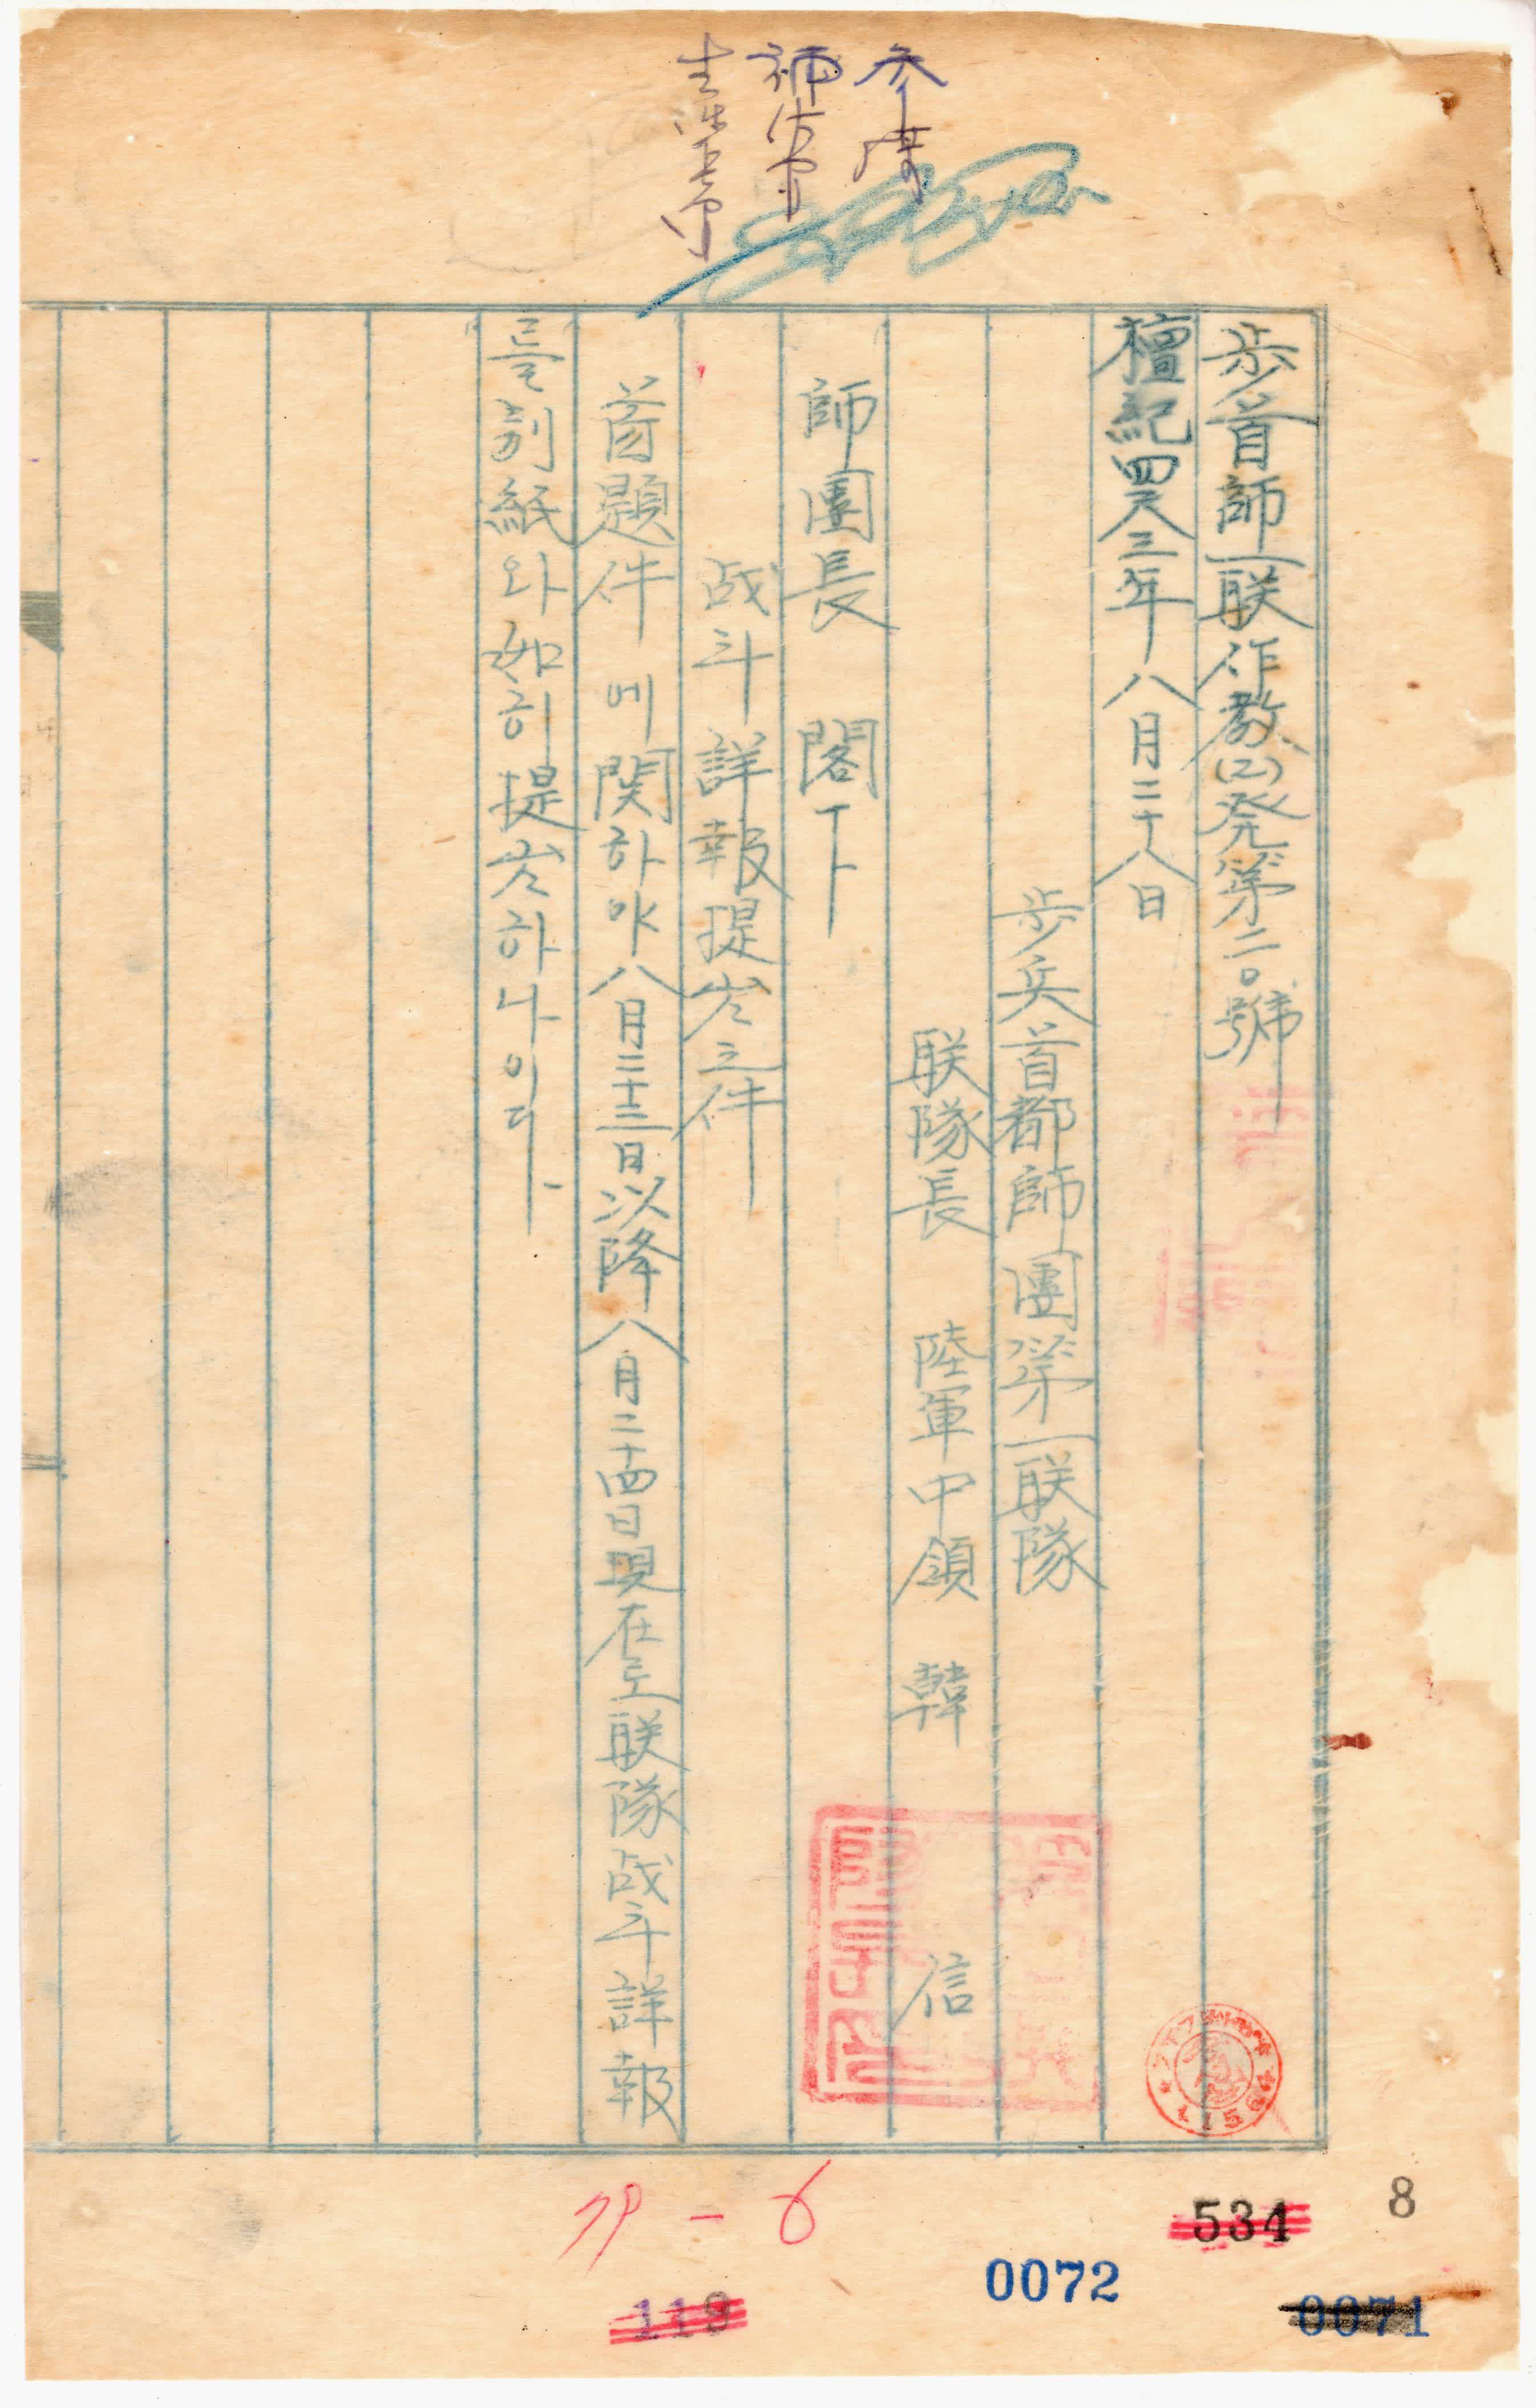 参謀
補佐官
歩首師一联作教(2)発第二〇號
檀紀四二八三年八月二十八日
歩兵首都師團第一联隊
联隊長 陸軍中領 韓 信
師團長 閣下
战斗詳報提出之件
首題件에関하야八月二十三日以降八月二十四日現在로联隊战斗詳報
를別紙와如히提出하나이다
카-6
534
8
0072
0071
119